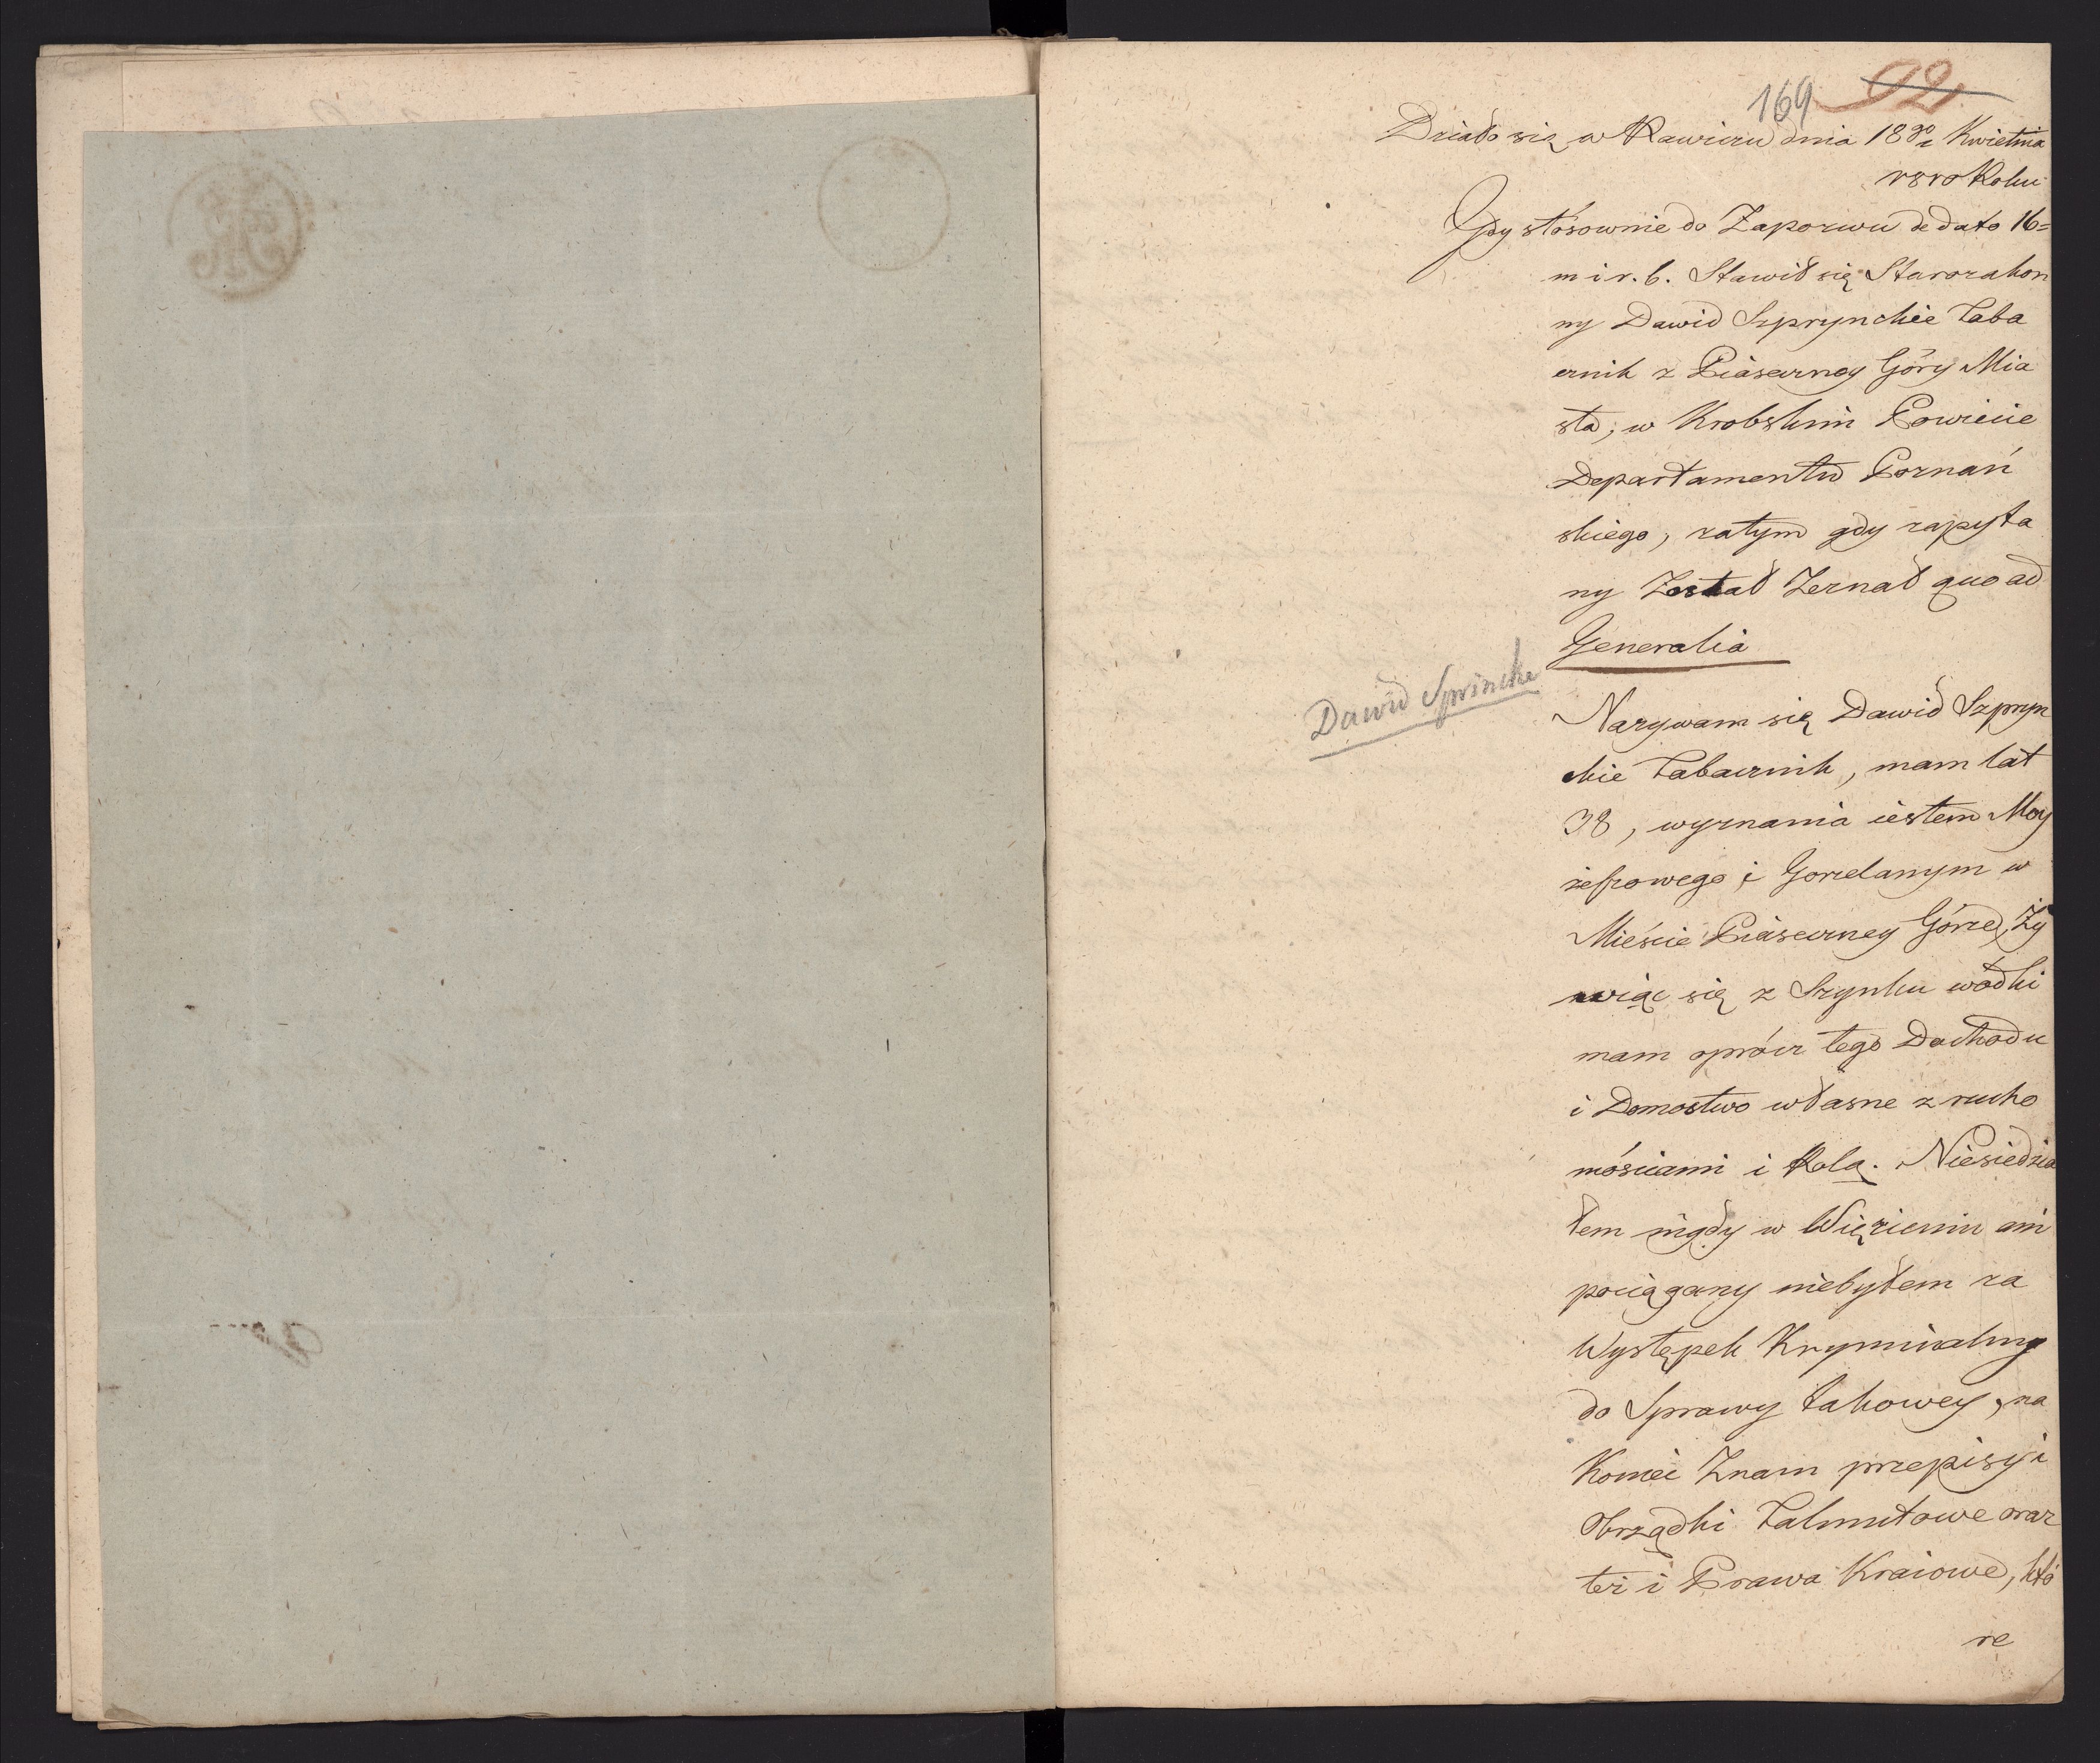 169 92
Działo się w Rawiczu dnia 18go Kwietnia
1810 Roku
Gdy stósownie do Zapozwu de dato 16=
m i r. b. Stawił się Starozakon
ny Dawid Szprynckie Taba
cznik z Piaseczney Góry Mia
sta, w Krobskim Powiecie
Departamentu Poznań
skiego, zatym gdy zapyta
ny Został Zeznał quo ad
Generalia
Dawid Sprincke
Nazywam się Dawid Szpryn
ckie Tabacznik, mam lat
38, wyznania iestem Moy
żeszowego i Gorzelanym w
Mieście Piaseczney Górze, Ży
wiąc się z Szynku wódki
mam oprócz tego Dochodu
i Domostwo własne z rucho
mościami i Rolą. Niesiedzia
łem nigdy w Więzieniu ani
pociągany niebyłem za
Występek Kryminalny
do Sprawy takowey, na
Koniec Znam przepisy i
Obrządki Talmutowe oraz
też i Prawa Kraiowe, któ
re